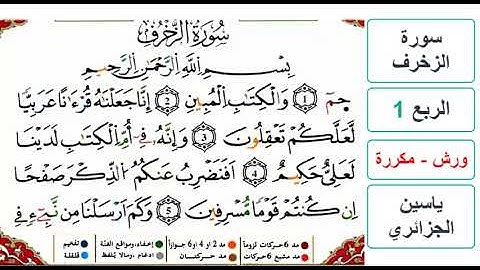 سُورَةُ الزُّخْرُفِ
بِسْمِ اِللَّهِ اِلرَّحْمَٰنِ اِلرَّحِيمِ
حَمِٓ 1 وَالْكِتَٰبِ اِلْمُبِينِ 2 إِنَّا جَعَلْنَٰهُ قُرْءَٰناً عَرَبِيّاً
لَّعَلَّكُمْ تَعْقِلُونَ 3 وَإِنَّهُۥ فِےٓ أُمِّ اِلْكِتَٰبِ لَدَيْنَا
لَعَلِيٌّ حَكِيمٌ 4 اَفَنَضْرِبُ عَنكُمُ اُلذِّكْرَ صَفْحاً
اِن كُنتُمْ قَوْماً مُّسْرِفِينَ 5 وَكَمَ اَرْسَلْنَا مِن نَّبِےٓءٖ فِے
مد 6 حركات لزوماً
مد 2 أو 4 أو 6 جوازاً
إخفاء، ومواقع الغنة
تفخيم
مد مشبع 6 حركات
مد حركتان
إدغام، ومالا يلفظ
قلقلة
سورة
الزخرف
الربع 1
ورش - مكررة
ياسين
الجزائري